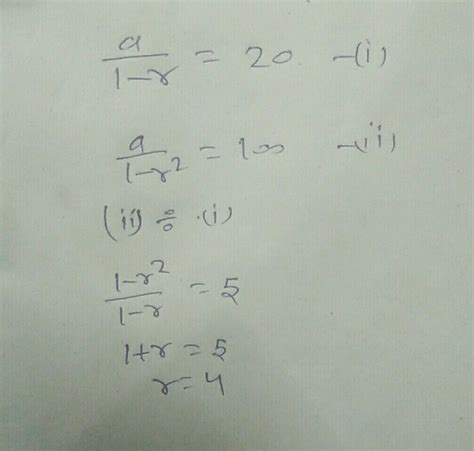 a/(1-r) = 20. -(i)
a/(1-r²) = 100 -(ii)
(ii) ÷ (i)
(1-r²)/(1-r) = 5
1+r = 5
r = 4